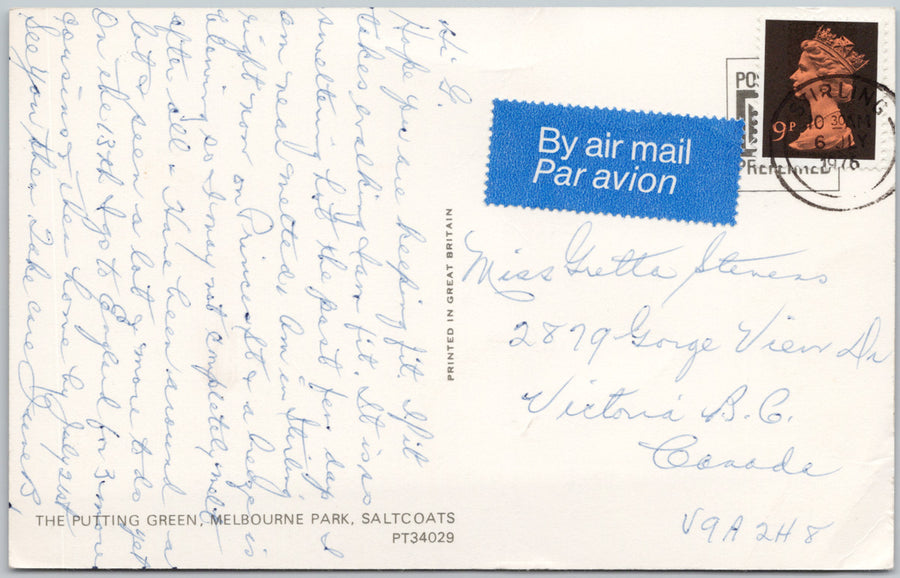 Hi G.
Hope you are keeping fit. If it
takes walking I am fit. It is so
smeltering hot the past few days I
am near melted. Am in Stirling
right now on Princes St & a breeze is
blowing so I may not completely melt
after all. Have been around a
bit & seen a lot & more to do yet
On the 13th I go to England for 3 more
cousins & then home by July 21st
See you then. Take care June B.
THE PUTTING GREEN, MELBOURNE PARK, SALTCOATS
PT34029
PRINTED IN GREAT BRITAIN
By air mail
Par avion
9P
STIRLING
10 30 AM
6 JLY
1976
PREFERRED
Miss Gretta Stevens
2879 Gorge View Dr
Victoria B.C.
Canada
V9A 2H8